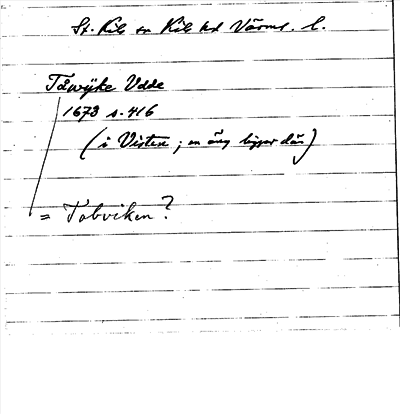 St. Kils sn Kils hd Värml. l.
Tåwijke Udde
1673 s. 416
(i Visten ; en äng ligger där)
= Tobviken?